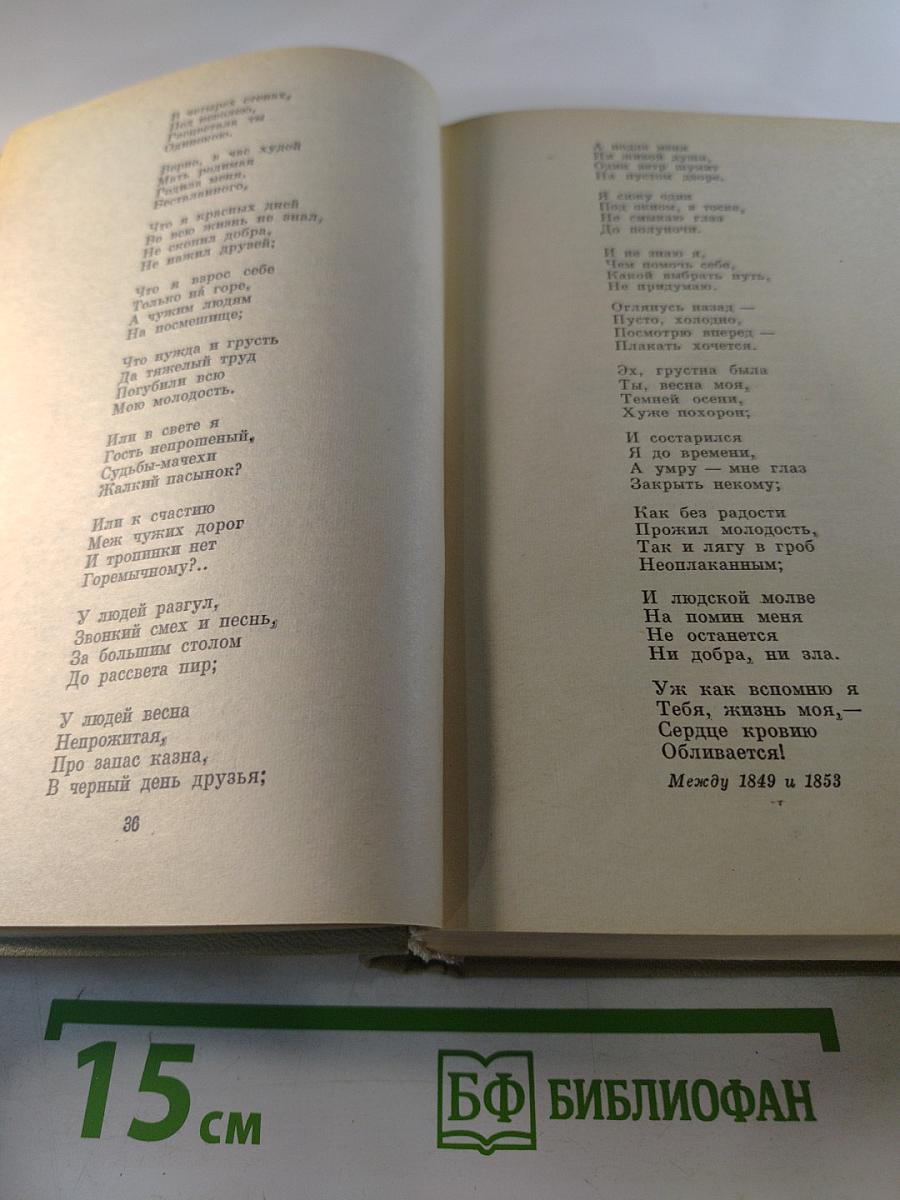 В четырех стенах,
Под неволею,
Расцветала ты
Одинокою.
Верно, в час худой
Мать родимая
Родила меня.
Бесталанного,
Что я красных дней
Во всю жизнь не знал,
Не скопил добра,
Не нажил друзей;
Что я взрос себе
Только на́ горе,
А чужим людям
На посмешище;
Что нужда и грусть
Да тяжелый труд
Погубили всю
Мою молодость.
Или в свете я
Гость непрошеный,
Судьбы-мачехи
Жалкий пасынок?
Или к счастию
Меж чужих дорог
И тропинки нет
Горемычному?..
У людей разгул,
Звонкий смех и песнь,
За большим столом
До рассвета пир;
У людей весна
Непрожитая,
Про запас казна,
В черный день друзья;
36
А подле меня
Ни живой души,
Один ветр шумит
На пустом дворе.
Я сижу один
Под окном, в тоске,
Не смыкаю глаз
До полуночи.
И не знаю я,
Чем помочь себе,
Какой выбрать путь,
Не придумаю.
Оглянусь назад —
Пусто, холодно,
Посмотрю вперед —
Плакать хочется.
Эх, грустна была
Ты, весна моя,
Темней осени,
Хуже похорон;
И состарился
Я до времени,
А умру — мне глаз
Закрыть некому;
Как без радости
Прожил молодость,
Так и лягу в гроб
Неоплаканным;
И людской молве
На помин меня
Не останется
Ни добра, ни зла.
Уж как вспомню я
Тебя, жизнь моя,—
Сердце кровию
Обливается!
Между 1849 и 1853
15 см
БФ БИБЛИОФАН